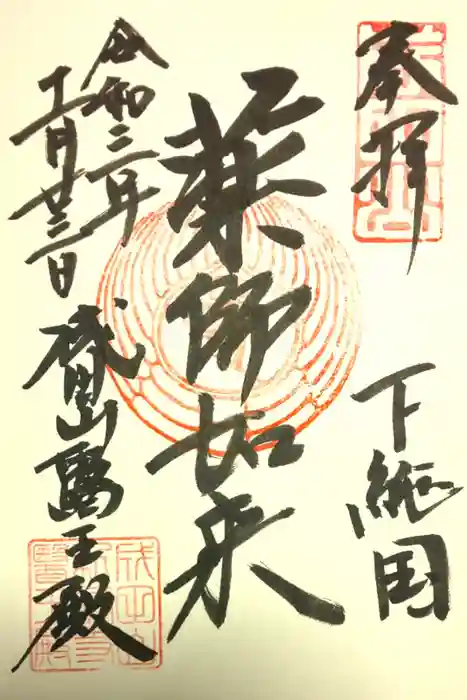 奉拝
下総国
薬師如来
令和三年
十一月廿三日
成田山醫王殿
成田山